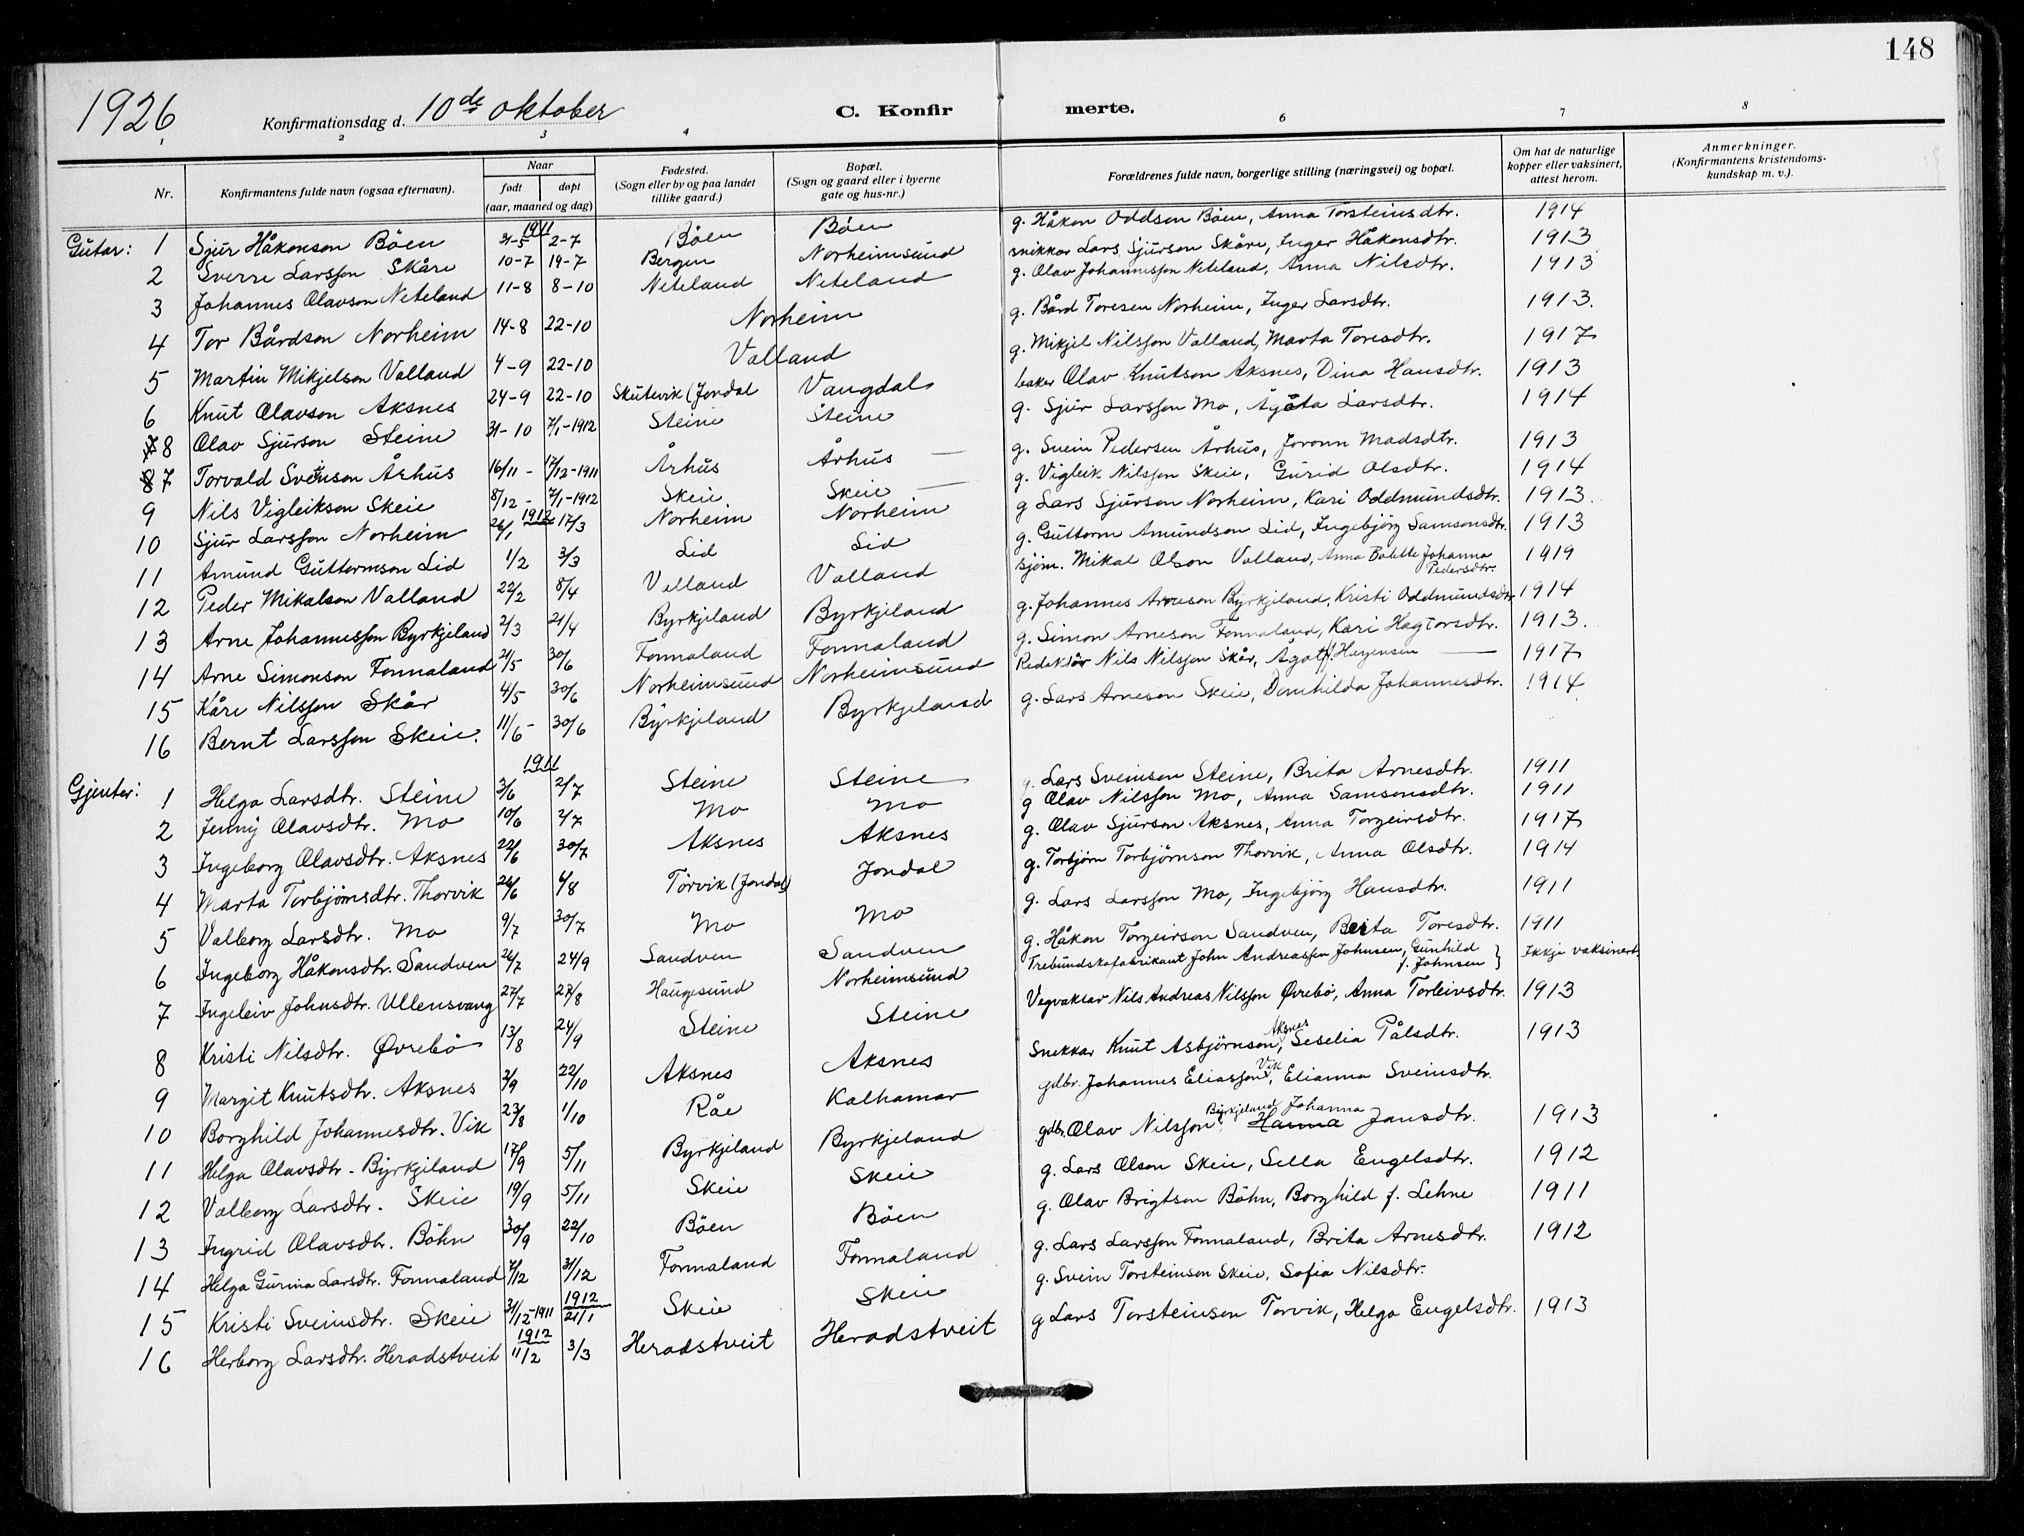 148
1926 Konfirmationsdag d. 10de oktober C. Konfirmerte.
1 2 3 4 6 7 8
Nr. Konfirmantens fulde navn (ogsaa efternavn). Naar født døpt (aar, maaned og dag) Fødested. (Sogn eller by og paa landet tillike gaard.) Bopæl. (Sogn og gaard eller i byerne gate og hus-nr.) Forældrenes fulde navn, borgerlige stilling (næringsvei) og bopæl. Om hat de naturlige kopper eller vaksinert, attest herom. Anmerkninger. (Konfirmantens kristendoms-kundskap m. v.).
1911
Gutar: 1 Sjur Håkonson Böen 31-5 2-7 Böen Böen g. Håkon Oddson Böen, Anna Torsteinsdtr. 1914
2 Sverre Larsson Skåre 10-7 19-7 Bergen Norheimsund snikkar Lars Sjurson Skåre, Inger Håkonsdtr. 1913
3 Johannes Olavson Neteland 11-8 8-10 Neteland Neteland g. Olav Johannesson Neteland, Anna Nilsdtr. 1913
4 Tor Bårdson Norheim 14-8 22-10 Norheim g. Bård Toresen Norheim, Inger Larsdtr. 1913.
5 Martin Mikjelson Valland 4-9 22-10 Valland g. Mikjel Nilsson Valland, Marta Toresdtr. 1917
6 Knut Olavson Aksnes 24-9 22-10 Skutevik (Jondal Vangdal baker Olav Knutson Aksnes, Dina Hansdtr. 1913
8 Olav Sjurson Steine 31-10 7/1-1912 Steine Steine g. Sjur Larsson Mo, Agata Larsdtr. 1914
7 Torvald Sveinson Århus 16/11 - 17/12-1911 Århus Århus — g. Svein Pedersen Århus, Joronn Madsdtr. 1913
9 Nils Vigleikson Skeie 8/12 - 7/1-1912 Skeie Skeie — g. Vigleik Nilsson Skeie, Gurid Olsdtr. 1914
1912
10 Sjur Larsson Norheim 26/1 17/3 Norheim Norheim g Lars Sjurson Norheim, Kari Oddmundsdtr. 1913.
11 Amund Guttormson Lid 1/2 3/3 Lid Lid g. Guttorm Amundson Lid, Ingebjörg Samsonsdtr. 1913
12 Peder Mikalson Valland 22/2 8/4 Valland Valland sjøm. Mikal Olson Valland, Anna Bolette Johanna Pedersdtr. 1919
13 Arne Johannesson Byrkjeland 2/3 21/4 Byrkjeland Byrkjeland g. Johannes Arneson Byrkjeland, Kristi Oddmundsdtr. 1914
14 Arne Simonson Fonnaland 21/5 30/6 Fonnaland Fonnaland g. Simon Arneson Fonnaland, Kari Hagtorsdtr. 1913.
15 Kåre Nilsson Skår 4/5 30/6 Norheimsund Norheimsund Redaktör Nils Nilsson Skår, Ågot f. Hagensen — 1917
16 Bernt Larsson Skeie. 11/6 - 30/6 Byrkjeland Byrkjeland g. Lars Arneson Skeie, Domhilda Johannesdtr. 1914
1911
Gjenter: 1 Helga Larsdtr. Steine 3/6 2/7 Steine Steine g. Lars Sveinson Steine, Brita Arnesdtr. 1911
2 Jenny Olavsdtr. Mo 10/6 2/7 Mo Mo g Olav Nilsson Mo, Anna Samsonsdtr. 1911
3 Ingeborg Olavsdtr. Aksnes 22/6 30/7 Aksnes Aksnes g. Olav Sjurson Aksnes, Anna Torgeirsdtr. 1917
4 Marta Torbjörnsdtr. Thorvik 26/6 6/8 Törvik (Jondal) Jondal g. Torbjörn Torbjörnson Thorvik, Anna Olsdtr. 1914
5 Valborg Larsdtr. Mo 9/7 30/7 Mo Mo g. Lars Larsson Mo, Ingebjörg Hansdtr. 1911
6 Ingeborg Håkonsdtr. Sandven 26/7 24/9 Sandven Sandven g. Håkon Torgeirson Sandven, Brita Toresdtr. 1911
7 Ingeleiv Johnsdtr. Ullensvang 27/7 27/8 Haugesund Norheimsund Trebundskofabrikant John Andreassen Johnsen, Gunhild f. Johnsen } Ikkje vaksinert.
8 Kristi Nilsdtr. Øvrebö 13/8 24/9 Steine Steine Vegvaktar Nils Andreas Nilsson Øvrebö, Anna Torleivsdtr. 1913
9 Margit Knutsdtr. Aksnes 3/9 22/10 Aksnes Aksnes Snekkar Knut Asbjörnson Aksnes, Seselia Pålsdtr. 1913
10 Borghild Johannesdtr. Vik 23/8 1/10 Råe Kalhamar gdbr. Johannes Eliasson Vik, Elianna Sveinsdtr.
11 Helga Olavsdtr. Byrkjeland 17/9 5/11 Byrkjeland Byrkjeland gdbr. Olav Nilsson Byrkjeland, Hanna Johanna Jansdtr. 1913
12 Valborg Larsdtr. Skeie 19/9 5/11 Skeie Skeie g. Lars Olson Skeie, Sella Engelsdtr. 1912
13 Ingrid Olavsdtr. Böhn 30/9 22/10 Böen Böen g. Olav Brigtson Böhn, Borghild f. Lehne 1911
14 Helga Gurina Larsdtr. Fonnaland 7/12 31/12 Fonnaland Fonnaland g. Lars Larsson Fonnaland, Brita Arnesdtr. 1912
15 Kristi Sveinsdtr. Skeie 31/12-1911 1912 21/1 Skeie Skeie g. Svein Torsteinson Skeie, Sofia Nilsdtr.
16 Herborg Larsdtr. Heradstveit 1912 11/2 3/3 Heradstveit Heradstveit g Lars Torsteinson Torvik, Helga Engelsdtr. 1913